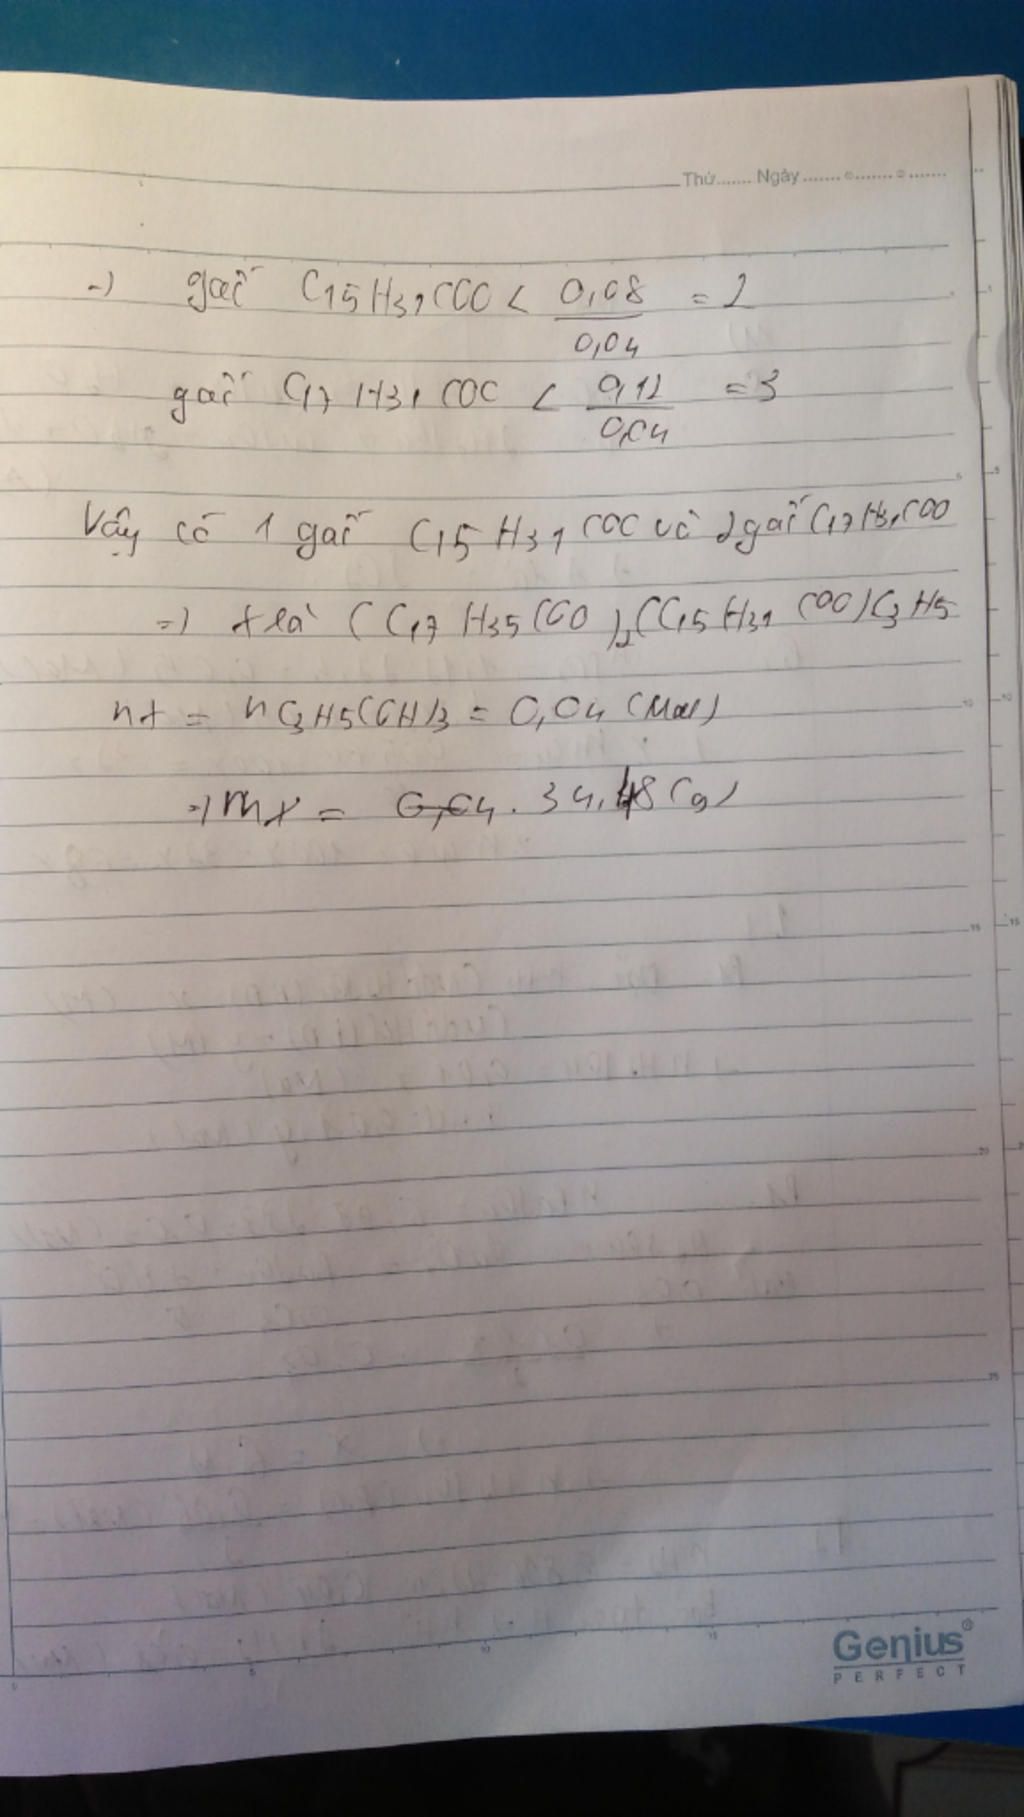 Thứ....... Ngày.......o.......o.......
-) gốc C15H31COO < 0,08/0,04 = 2
gốc C17H31COO < 0,12/0,04 = 3
Vậy có 1 gốc C15H31COO và 2 gốc C17H31COO
=) X là (C17H35COO)2(C15H31COO)C3H5
nX = nC3H5(OH)3 = 0,04 (mol)
=) mX = 0,04 . 34,48 (g)
Genius
PERFECT